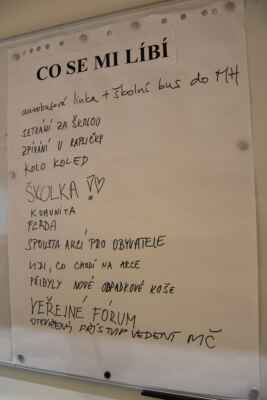 CO SE MI LÍBÍ
autobusová linka + školní bus do MH
SETKÁNÍ ZA ŠKOLOU
ZPÍVÁNÍ U KAPLIČKY
KOLO KOLED
ŠKOLKA!
KOMUNITA
SPOUSTA AKCÍ PRO OBYVATELE
LIDI, CO CHODÍ NA AKCE
PŘIBYLY NOVÉ ODPADKOVÉ KOŠE
VEŘEJNÉ FÓRUM
OTEVŘENÝ PŘÍSTUP VEDENÍ MČ